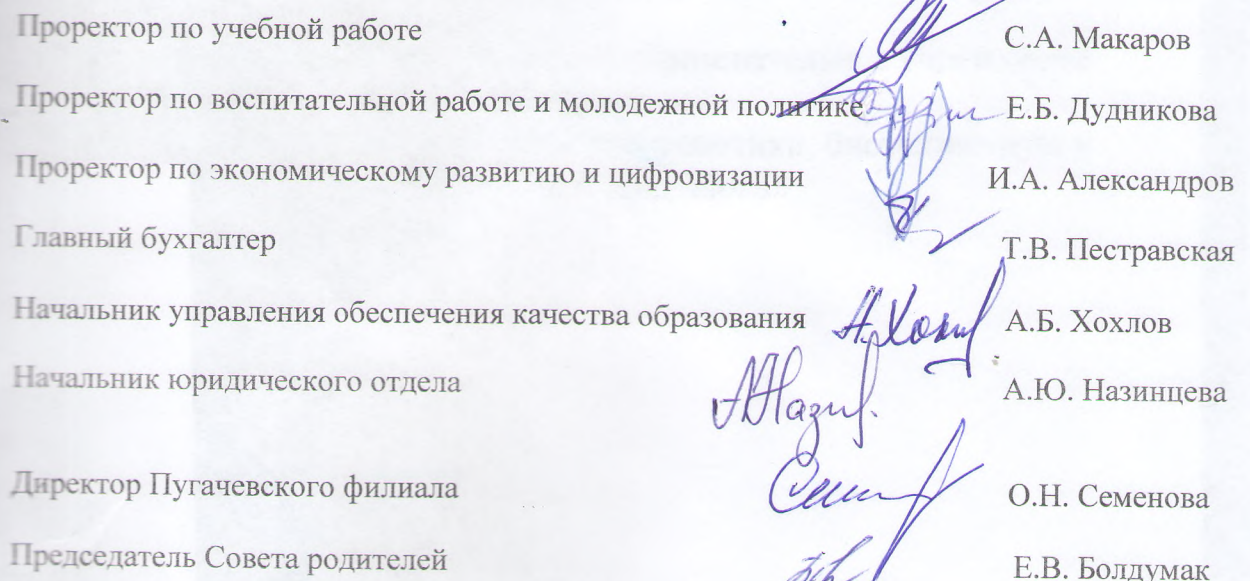 Проректор по учебной работе С.А. Макаров
Проректор по воспитательной работе и молодежной политике Е.Б. Дудникова
Проректор по экономическому развитию и цифровизации И.А. Александров
Главный бухгалтер Т.В. Пестравская
Начальник управления обеспечения качества образования А.Б. Хохлов
Начальник юридического отдела А.Ю. Назинцева
Директор Пугачевского филиала О.Н. Семенова
Председатель Совета родителей Е.В. Болдумак